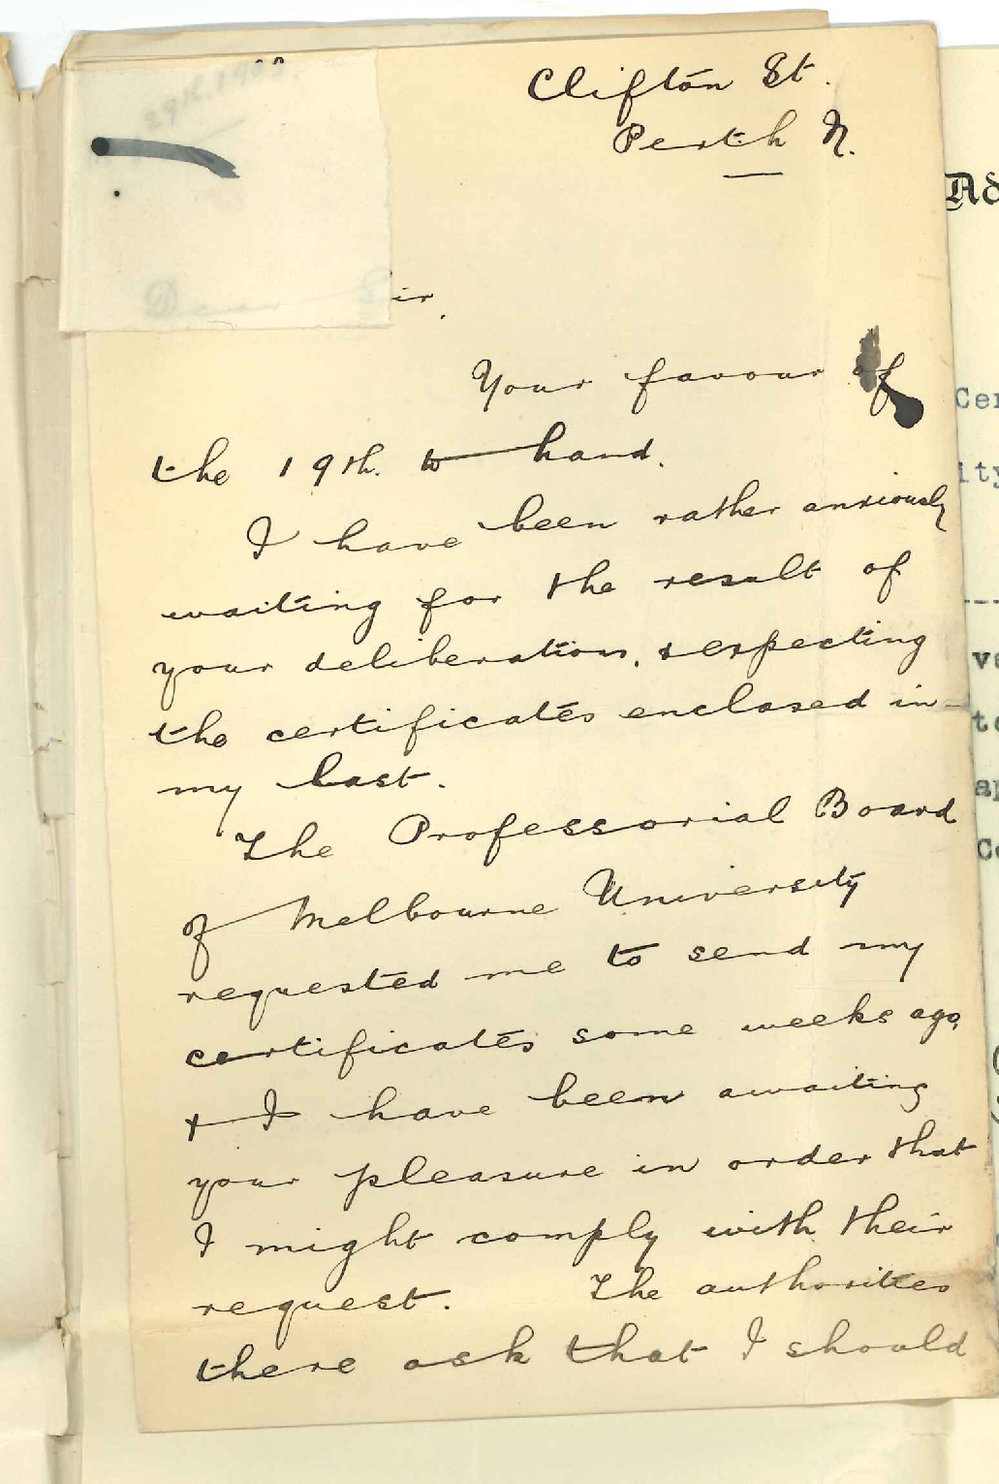 Clifton St.
Perth N.
29th. 1902.
Dear Sir,
Your favour of
the 19th. to hand.
I have been rather anxiously
waiting for the result of
your deliberation, respecting
the certificates enclosed in
my last.
The Professorial Board
of Melbourne University
requested me to send my
certificates some weeks ago,
& I have been awaiting
your pleasure in order that
I might comply with their
request. The authorities
there ask that I should